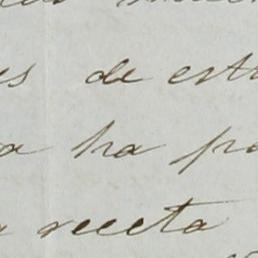 es de est
a ha pa
a receta